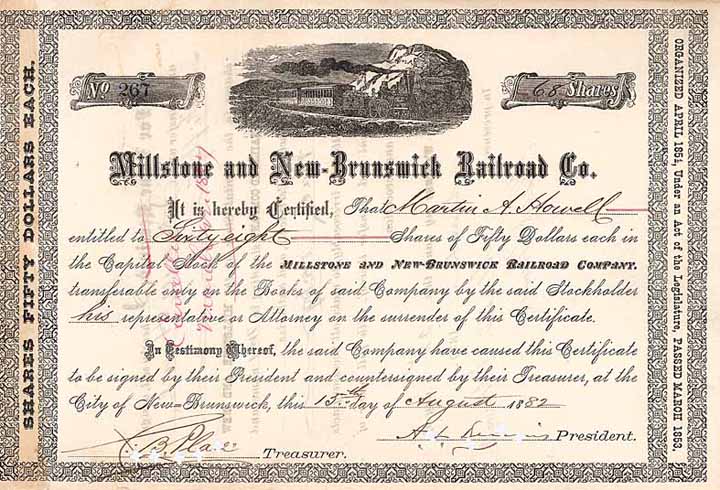 SHARES FIFTY DOLLARS EACH.
No 267
68 Shares
Millstone and New-Brunswick Railroad Co.
It is hereby Certified, That Martin A. Howell
entitled to Sixty eight Shares of Fifty Dollars each in
the Capital Stock of the MILLSTONE AND NEW-BRUNSWICK RAILROAD COMPANY.
transferable only on the Books of said Company by the said Stockholder
his representative or Attorney on the surrender of this Certificate.
In Testimony Whereof, the said Company have caused this Certificate
to be signed by their President and countersigned by their Treasurer, at the
City of New-Brunswick, this 15th day of August 1882
Treasurer.
President.
ORGANIZED APRIL 1854, Under an Act of the Legislature, PASSED MARCH 1853.